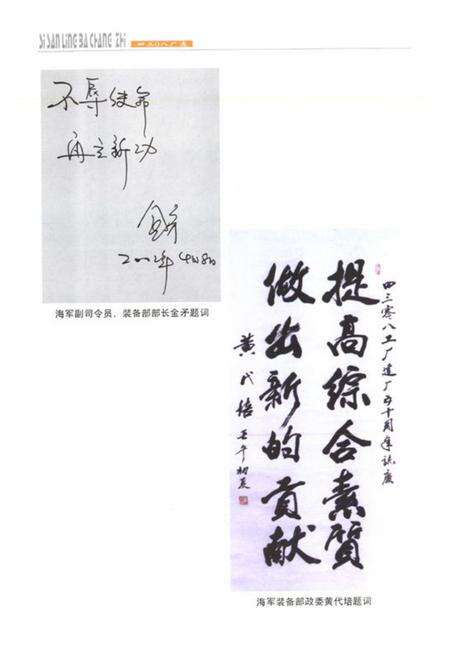 SI SAN LING BA CHANG ZHI
四三〇八厂志
不辱使命
再立新功
金矛
二〇〇二年4月8日
海军副司令员、装备部部长金矛题词
四三零八工厂建厂五十周年志庆
提高综合素質
做出新的贡献
黄代培 壬午初夏
海军装备部政委黄代培题词